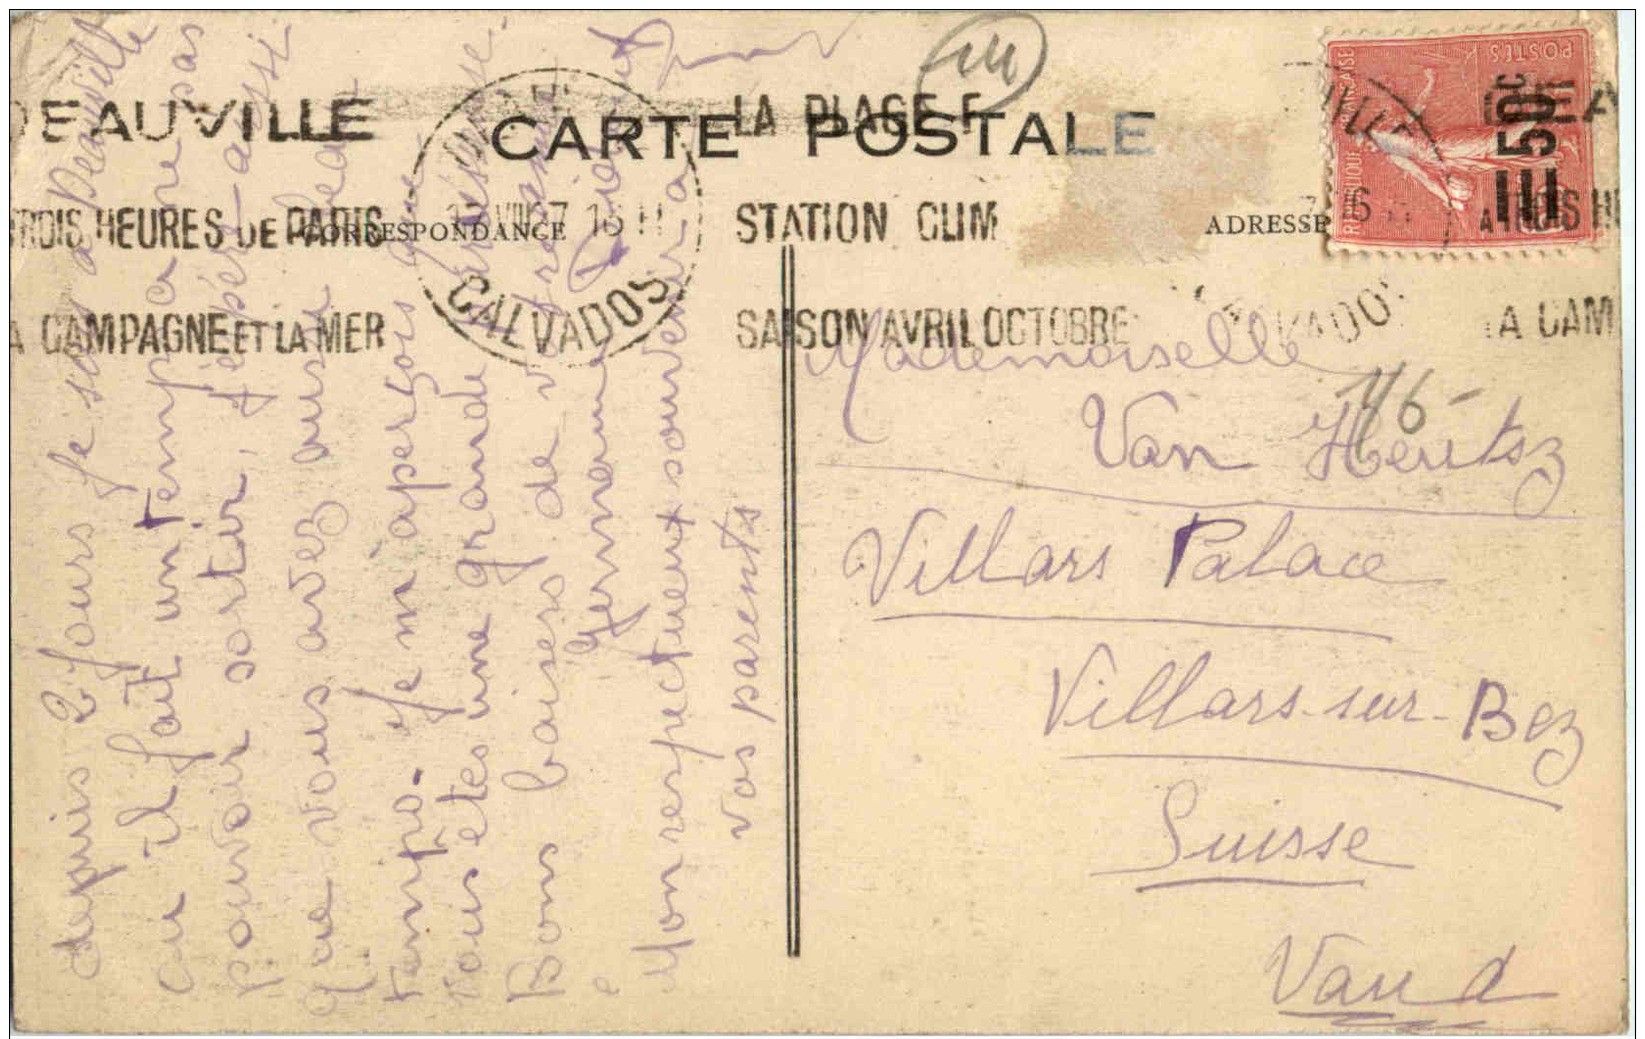 DEAUVILLE
CARTE POSTALE
LA PLAGE F
TROIS HEURES DE PARIS
CORRESPONDANCE
VIII 27 16 H
STATION CLIM
ADRESSE
LA CAMPAGNE ET LA MER
CALVADOS
SAISON AVRIL OCTOBRE
CALVADOS
LA CAM
POSTES
REPUBLIQUE FRANÇAISE
50c
depuis 2 jours je suis à Deauville
ou il fait un temps a ne pas
pouvoir sortir, j'espér aussi
que vous avez aussi beau
temps. je m'aperçois que
vous êtes une grande
Bons baisers de votre amie
Germaine
Mon respectueux souvenir a
vos parents
Mademoiselle
Van Heutsz
Villars Palace
Villars-sur-Bez
Suisse
Vaud
116-